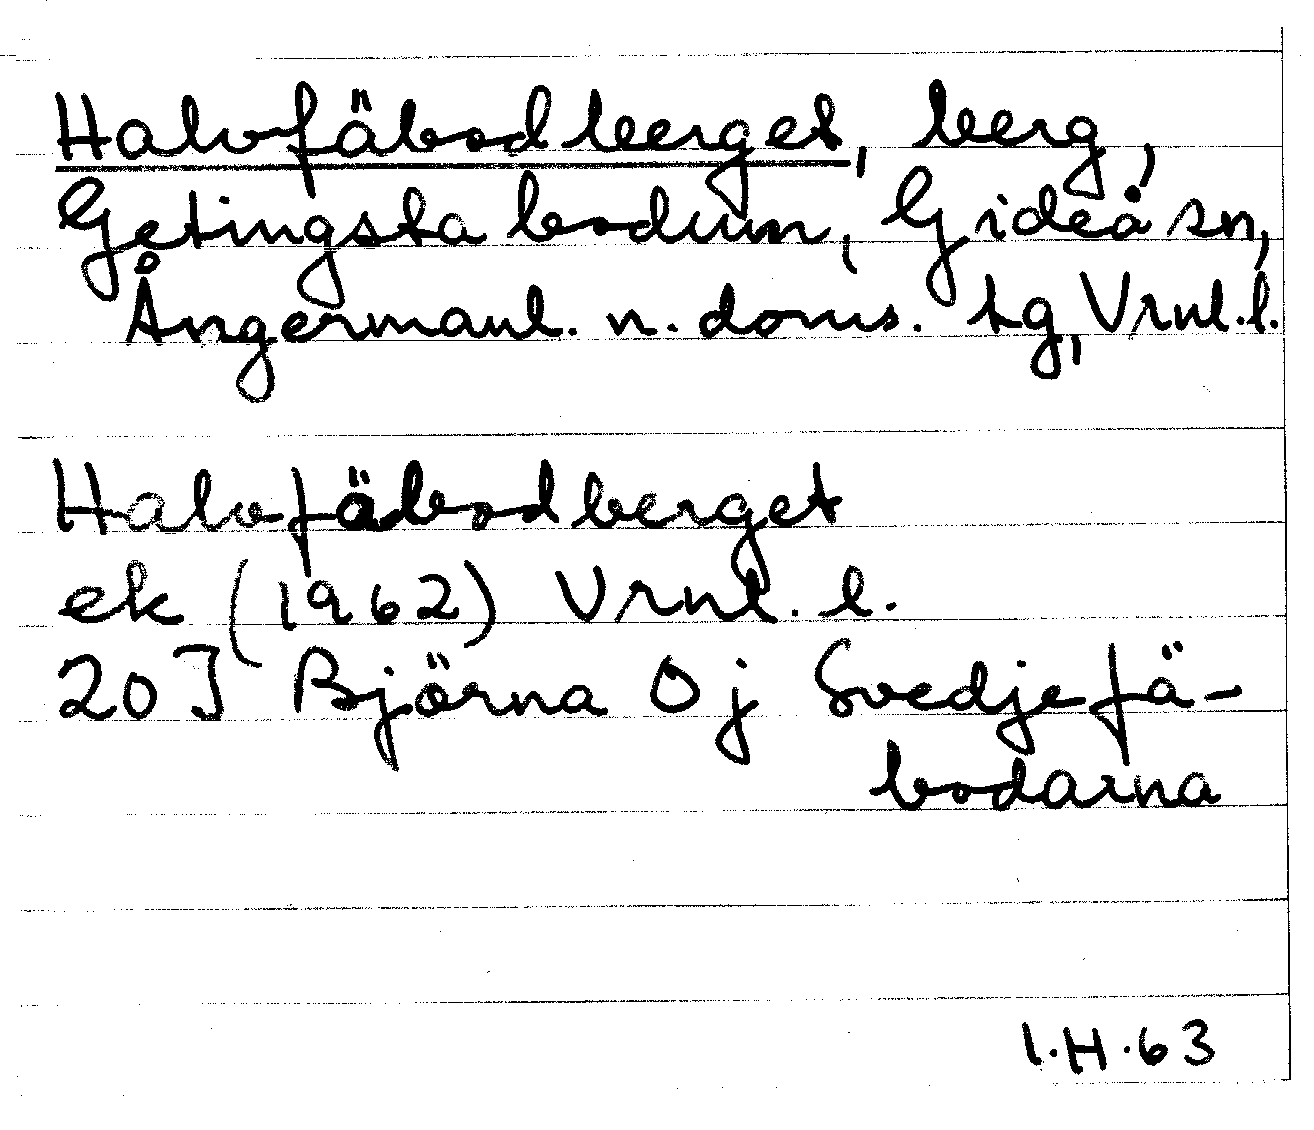 Halvfäbodberget, berg,
Getingsta bodum, Gideå sn,
Ångermanl. n. doms. tg, Vrnl.l.
Halvfäbodberget
ek (1962) Vrnl. l.
20J Björna Oj Svedjefä-
bodarna
I.H.63